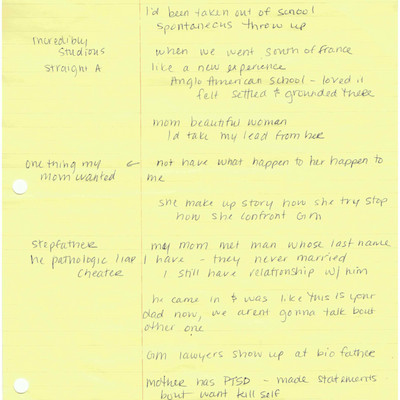 I'd been taken out of school
spontaneous throw up
Incredibly
studious
straight A
when we went south of france
like a new experience
Anglo American school - loved it
felt settled & grounded there
mom beautiful woman
I'd take my lead from her
one thing my
mom wanted
← not have what happen to her happen to
me
she make up story how she try stop
how she confront GM
stepfather
he pathologic liar
cheater
my mom met man whose last name
I have - they never married
I still have relationship w/ him
he came in & was like this is your
dad now, we arent gonna talk bout
other one
GM lawyers show up at bio father
mother has PTSD - made statements
bout want kill self